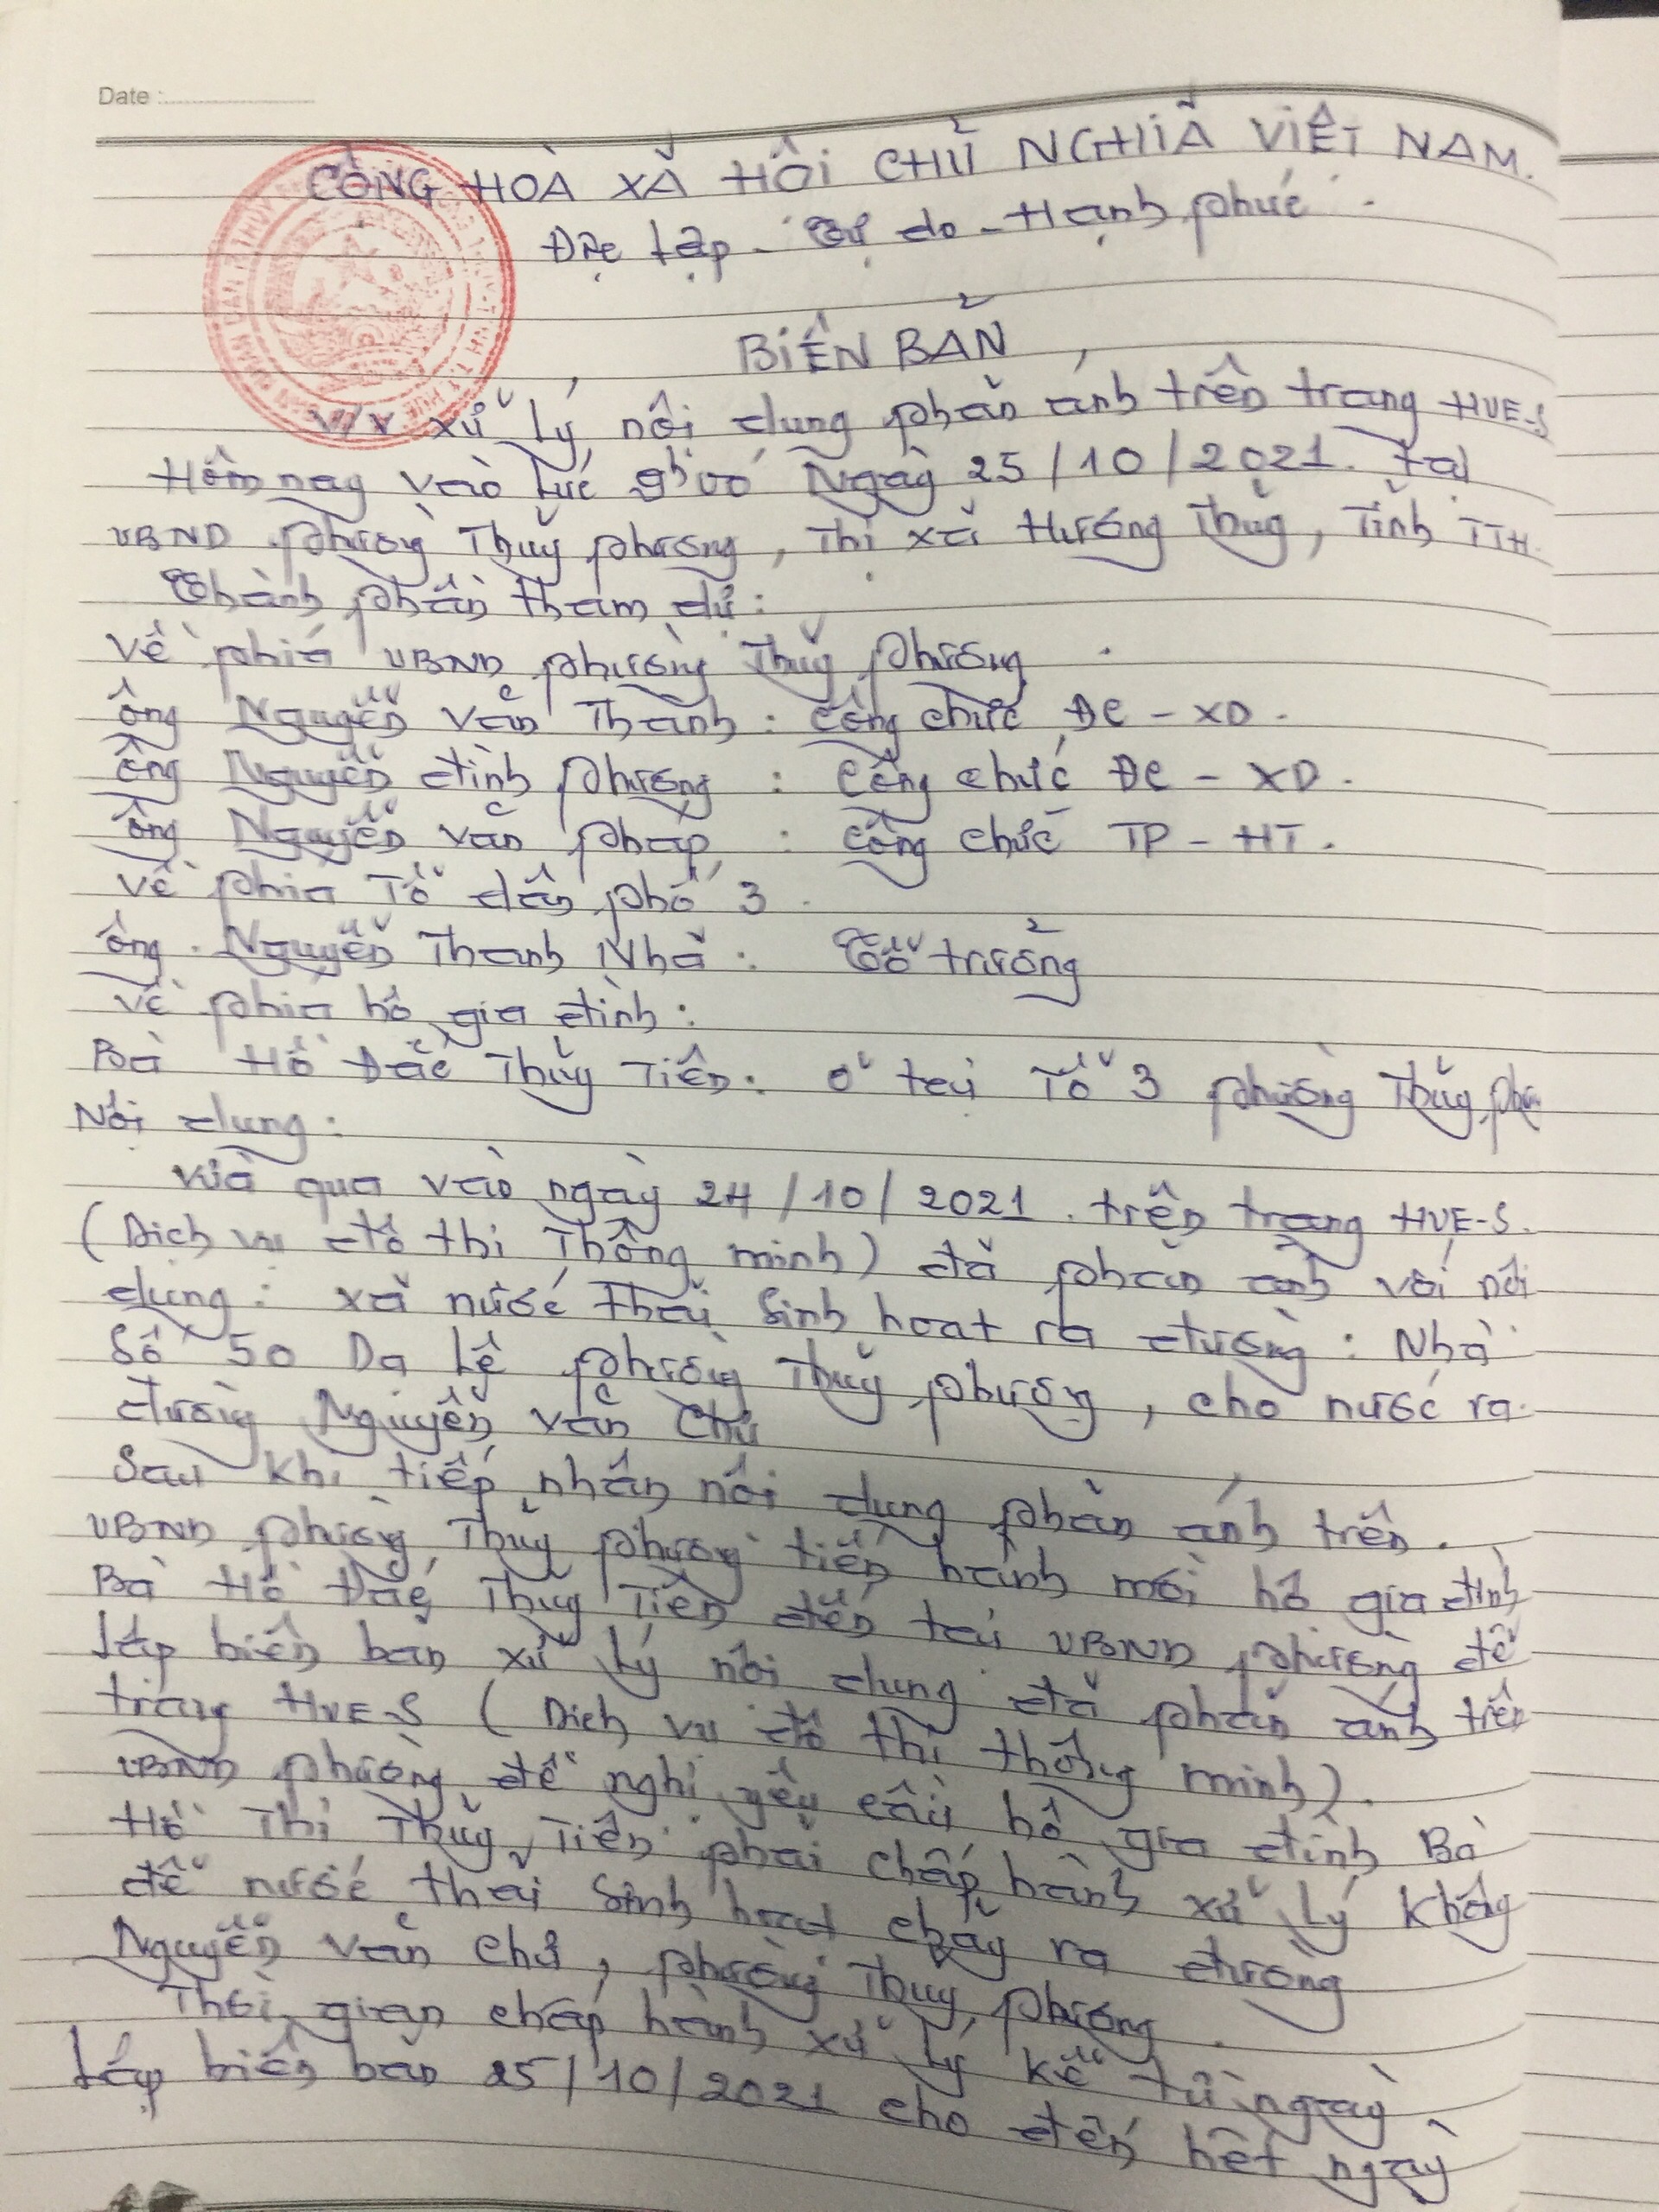 Date :
CỘNG HOÀ XÃ HỘI CHỦ NGHĨA VIỆT NAM.
Độc lập - Tự do - Hạnh phúc
BIÊN BẢN
V/v xử lý nội dung phản ánh trên trang HUE-S
Hôm nay vào lúc 9h00 Ngày 25/10/2021. tại
UBND phường Thủy phương, Thị xã Hương Thủy, Tỉnh TTH.
Thành phần tham dự:
Về phía UBND phường Thủy phương
ông Nguyễn Văn Thành: công chức ĐC - XD.
ông Nguyễn đình phương: công chức ĐC - XD.
ông Nguyễn văn pháp: công chức TP - HT.
Về phía Tổ dân phố 3
ông Nguyễn Thanh Nhã: Tổ trưởng
Về phía hộ gia đình:
Bà Hồ Đắc Thủy Tiên: ở tại Tổ 3 phường Thủy phư
Nội dung:
Vừa qua vào ngày 24/10/2021. trên trang HUE-S.
(Dịch vụ đô thị Thông minh) đã phản ánh với nội
dung: xả nước thải sinh hoạt ra đường: Nhà
số 50 Dạ Lê phường Thủy phương, cho nước ra
đường Nguyễn Văn Chư
Sau khi tiếp nhận nội dung phản ánh trên.
UBND phường Thủy phương tiến hành mời hộ gia đình
Bà Hồ Đắc Thủy Tiên đến tại UBND phường để
lập biên bản xử lý nội dung đã phản ánh trên
trang HUE-S (Dịch vụ đô thị thông minh).
UBND phường đề nghị yêu cầu hộ gia đình Bà
Hồ Thị Thủy Tiên phải chấp hành xử lý không
để nước thải sinh hoạt chảy ra đường
Nguyễn Văn Chư, phường Thủy phương.
Thời gian chấp hành xử lý kể từ ngày
lập biên bản 25/10/2021 cho đến hết ngày